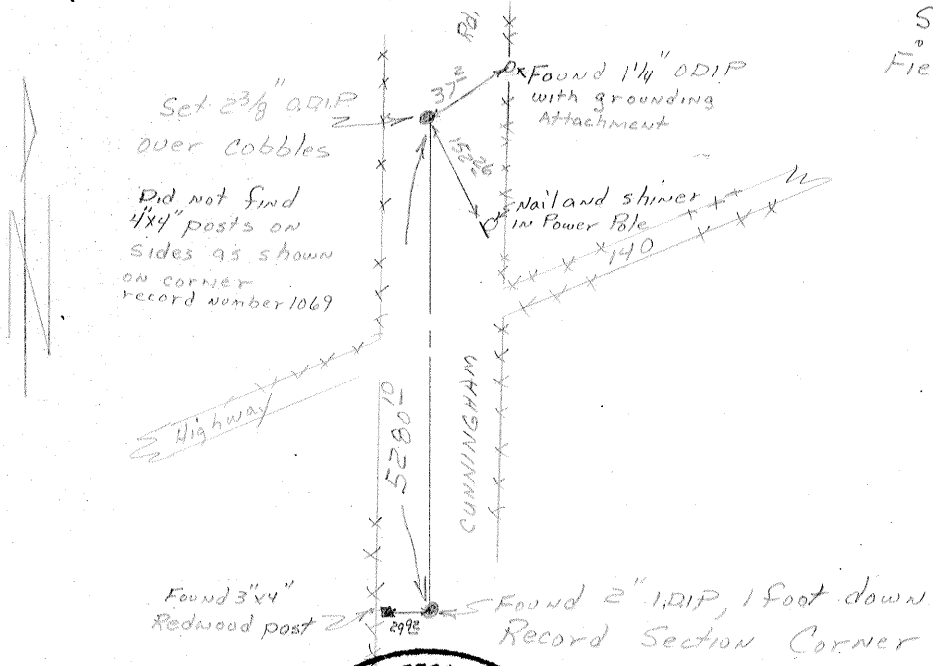 S
Fie
Rd.
Found 1¼" O.D.I.P
with grounding
Attachment
37²
Set 2⅜" O.D.I.P
over cobbles
152²⁶
Did not find
4"x4" posts on
sides as shown
on corner
record number 1069
Nail and shiner
in Power Pole
140
Highway
5280¹⁰
CUNNINGHAM
Found 3"x4"
Redwood post
29⁹²
Found 2" I.D.I.P, 1 foot down
Record Section Corner